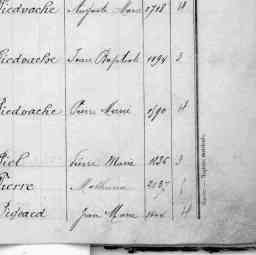 Piedvache Auguste Marie 1718
Piedvache Jean Baptiste 1894 3
Piedvache Pierre Marie 1890 4
Piel Pierre Marie 1836 3
Pierre Mathurin 2137
Pigeard Jean Marie 4